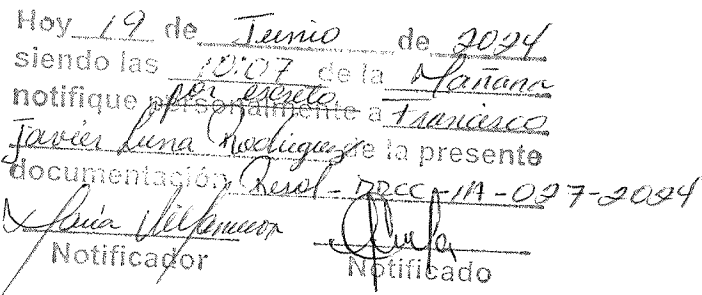 Hoy 19 de Junio de 2024
siendo las 10:07 de la Mañana
por escrito
notifique personalmente a Francisco
Javier Luna Rodriguez de la presente
documentación Resol-DRCC-IA-027-2024
María Villamueva
Notificador Notificado